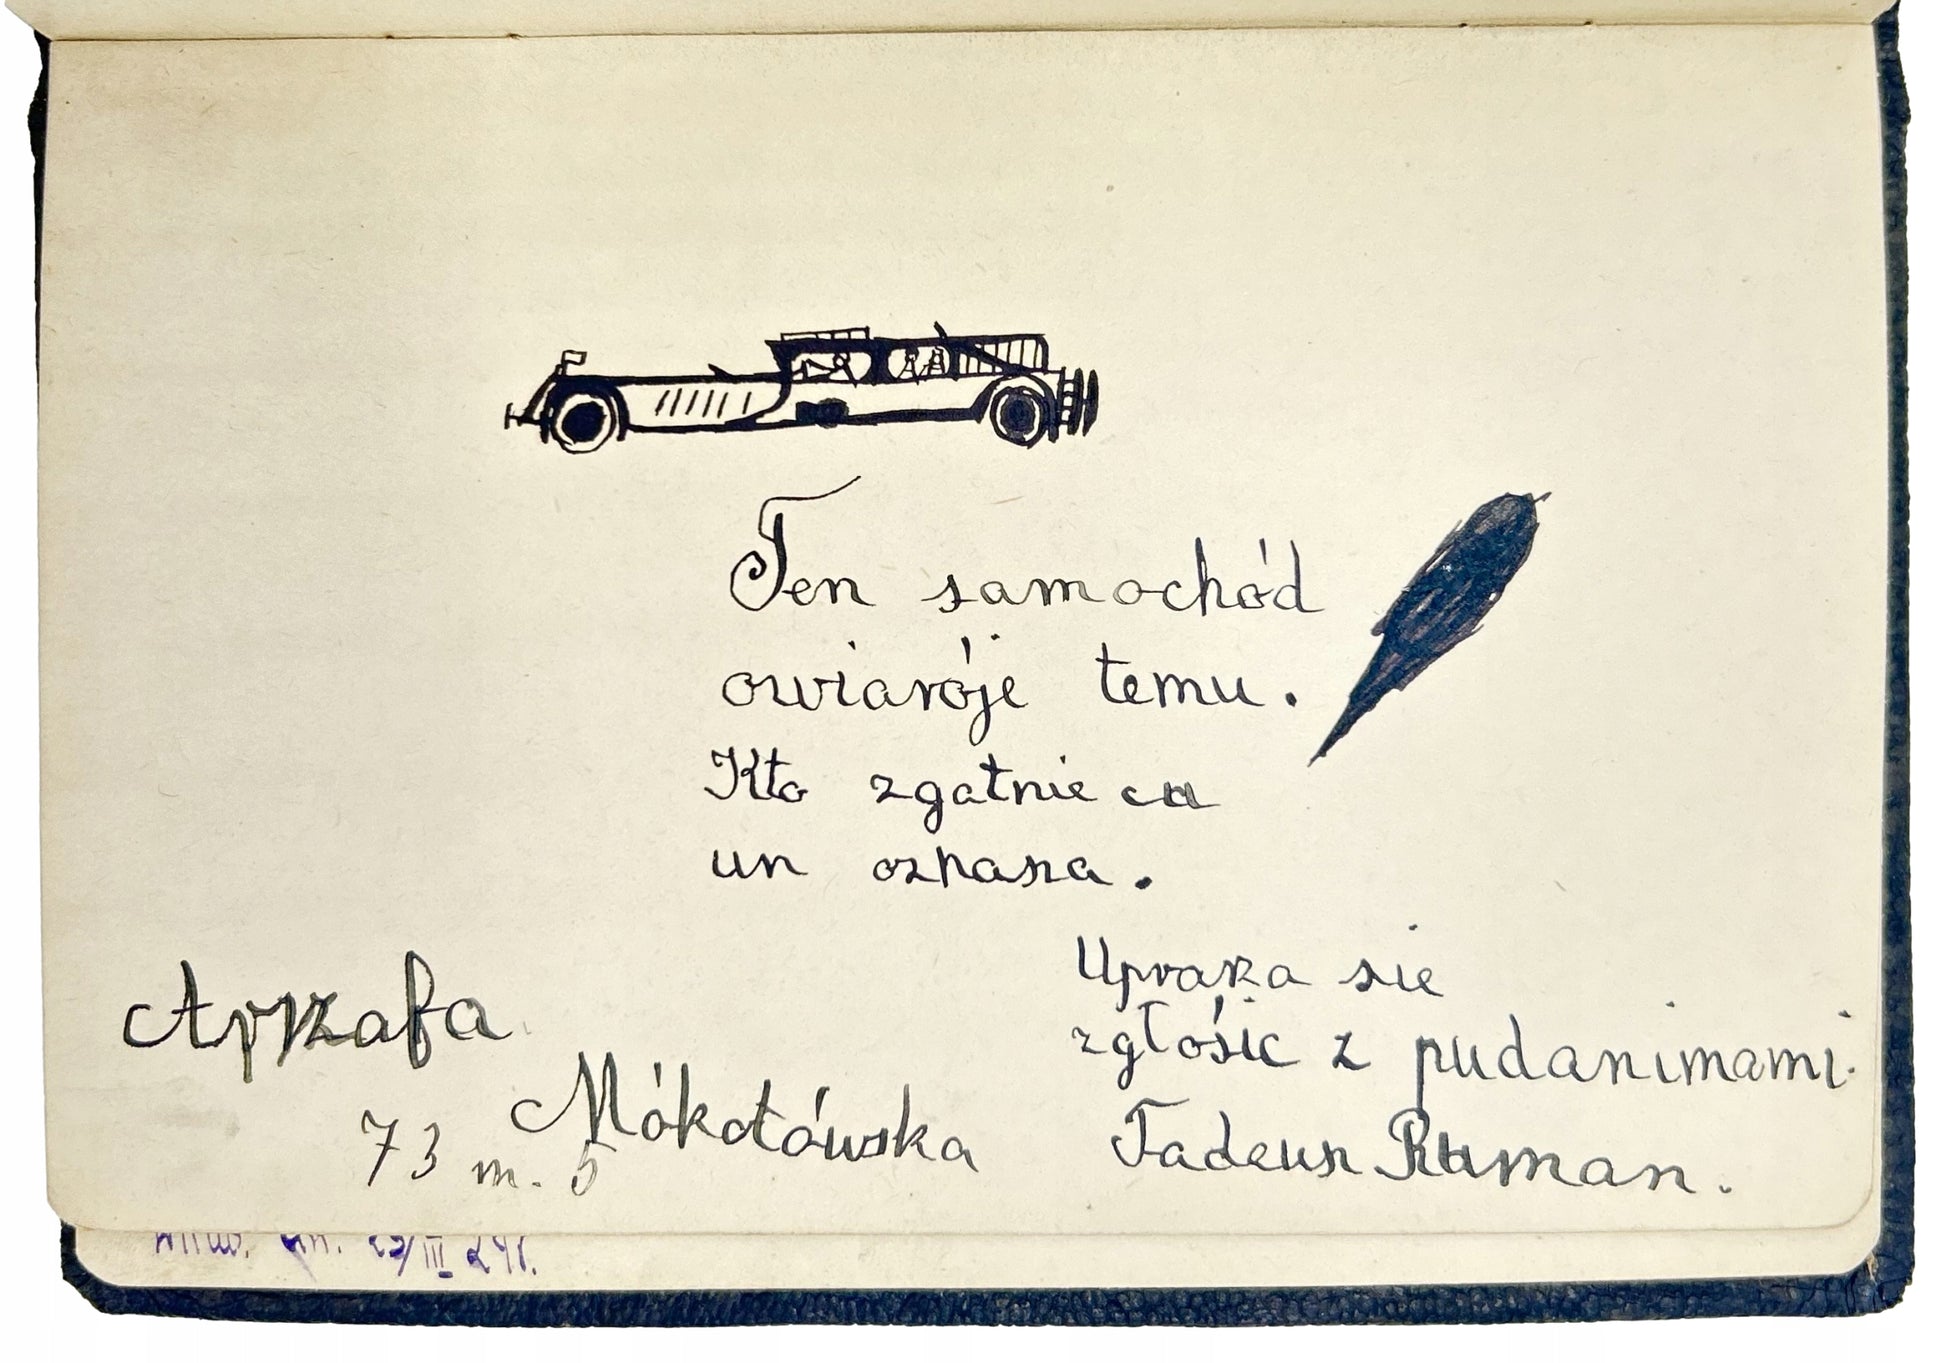 Ten samochód
owiaróje temu.
Kto zgatnie ca
un oznasza.
Uprasza sie
zgłośic z pudanimami.
Tadeusz Ruman.
Mókotówska
73 m. 5